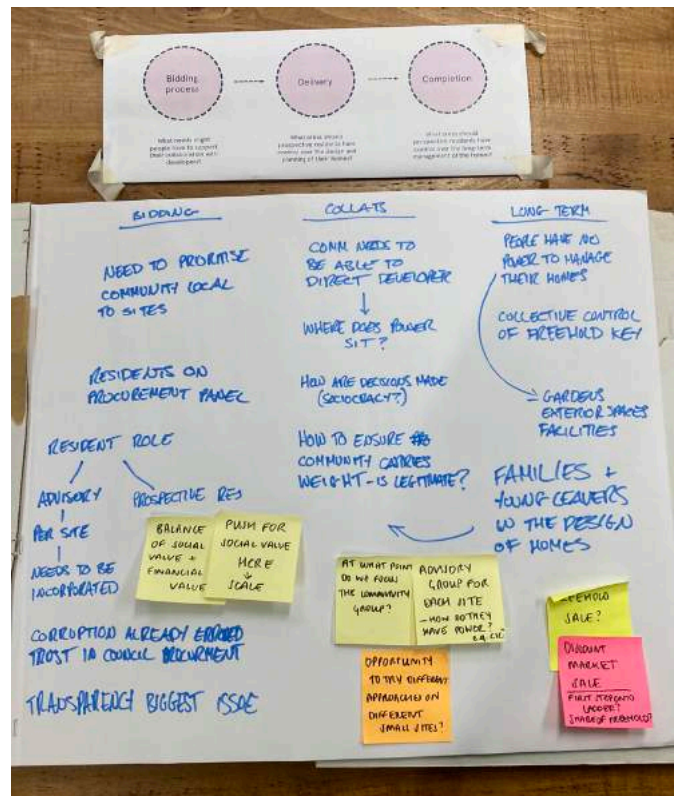 Bidding
process
Delivery
Completion
BIDDING
NEED TO PRIORITISE
COMMUNITY LOCAL
TO SITES
RESIDENTS ON
PROCUREMENT PANEL
RESIDENT ROLE
ADVISORY
PROSPECTIVE RES
PER SITE
NEEDS TO BE
INCORPORATED
BALANCE
OF SOCIAL
VALUE +
FINANCIAL
VALUE
PUSH FOR
SOCIAL VALUE
HERE
↓
SCALE
CORRUPTION ALREADY ERODED
TRUST IN COUNCIL PROCURMENT
TRANSPARENCY BIGGEST ISSUE
COLLABS
COMM NEEDS TO
BE ABLE TO
DIRECT DEVELOPER
↓
WHERE DOES POWER
SIT?
HOW ARE DECISIONS MADE
(SOCIOCRACY?)
HOW TO ENSURE
COMMUNITY CARRIES
WEIGHT - IS LEGITIMATE?
AT WHAT POINT
DO WE FOCUS
THE COMMUNITY
GROUP?
ADVISORY
GROUP FOR
EACH SITE
- HOW DO THEY
HAVE POWER?
OPPORTUNITY
TO TRY DIFFERENT
APPROACHES ON
DIFFERENT
SMALL SITES?
LONG TERM
PEOPLE HAVE NO
POWER TO MANAGE
THEIR HOMES
COLLECTIVE CONTROL
OF FREEHOLD KEY
- GARDENS
EXTERIOR SPACES
FACILITIES
FAMILIES +
YOUNG LEAVERS
IN THE DESIGN
OF HOMES
SALE?
DISCOUNT
MARKET
SALE
FIRST STEP ONTO
LADDER?
SHARE OF FREEHOLD?